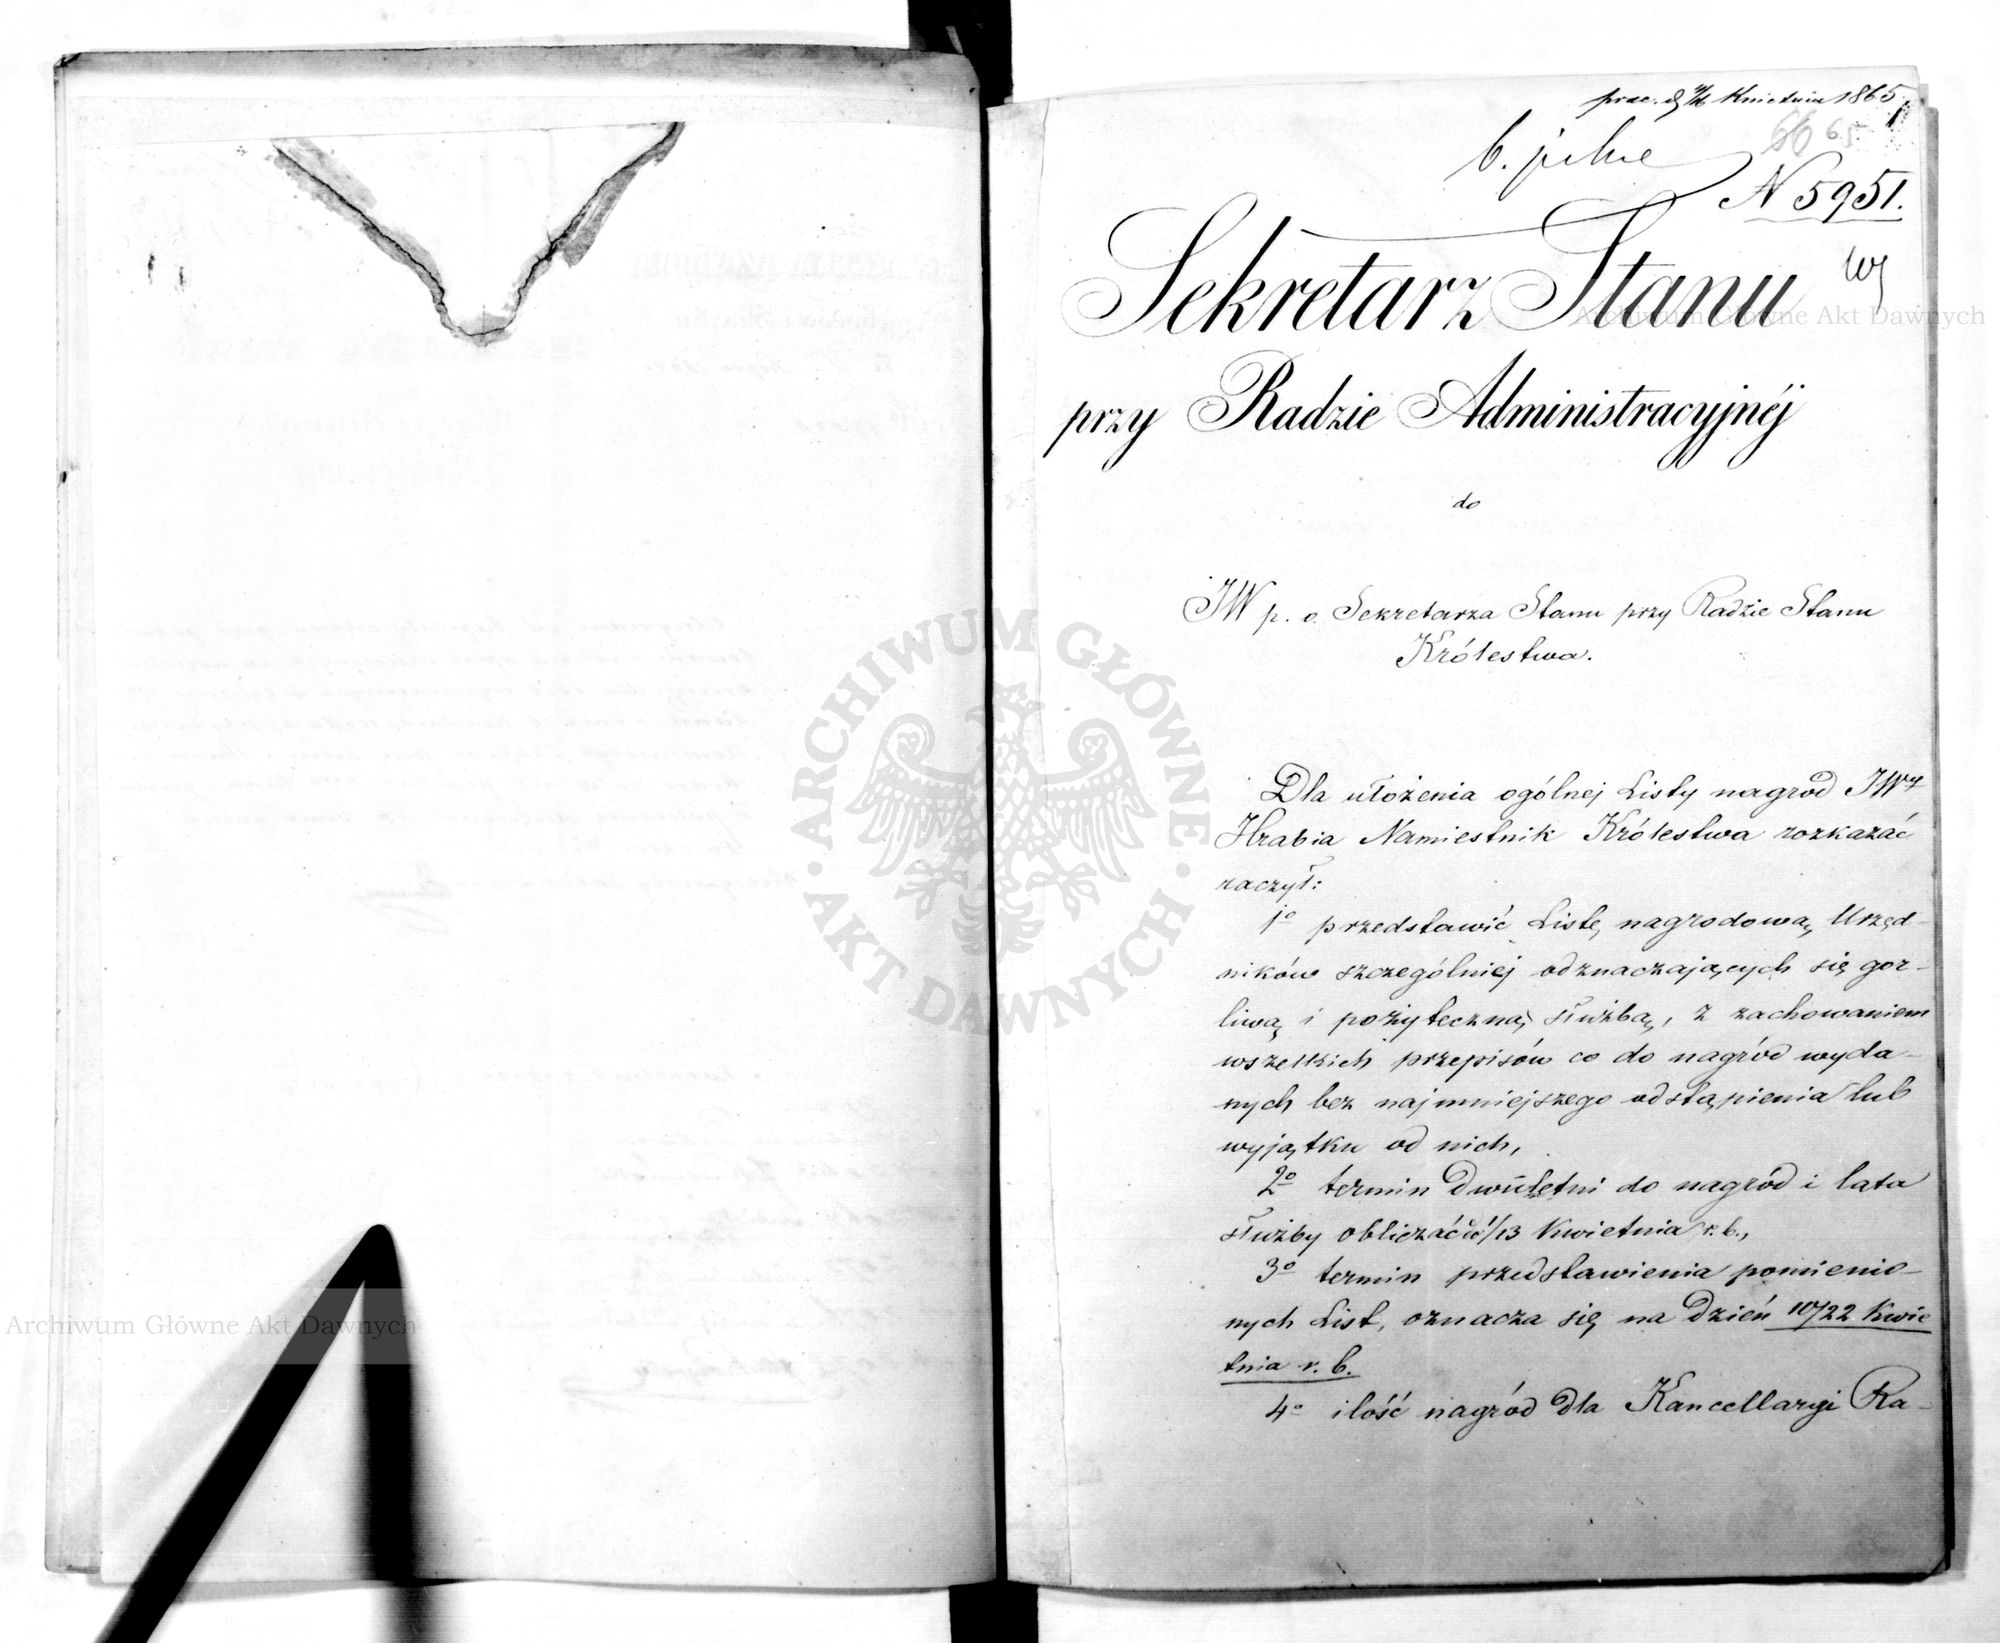 prez. d. 4/16 Kwietnia 1865
b. pilne
66 65
N 5951.
Sekretarz Stanu
przy Radzie Administracyjnéj
do
JW p. o. Sekretarza Stanu przy Radzie Stanu
Królestwa.
Dla ułożenia ogólnej Listy nagród JWy
Hrabia Namiestnik Królestwa rozkazać
raczył:
1o przedstawić Listę nagrodową Urzęd-
ników szczególniej odznaczających się gor-
liwą i pożyteczną służbą, z zachowaniem
wszelkich przepisów co do nagród wyda-
nych bez najmniejszego odstąpienia lub
wyjątku od nich,
2o termin dwuletni do nagród i lata
służby obliczać do 1/13 Kwietnia r. b.,
3o termin przedstawienia pomienio-
nych List, oznacza się na dzień 10/22 Kwie
tnia r. b.
4o ilość nagród dla Kancellaryi Ra-
ARCHIWUM GŁÓWNE AKT DAWNYCH
Archiwum Główne Akt Dawnych
Archiwum Główne Akt Dawnych